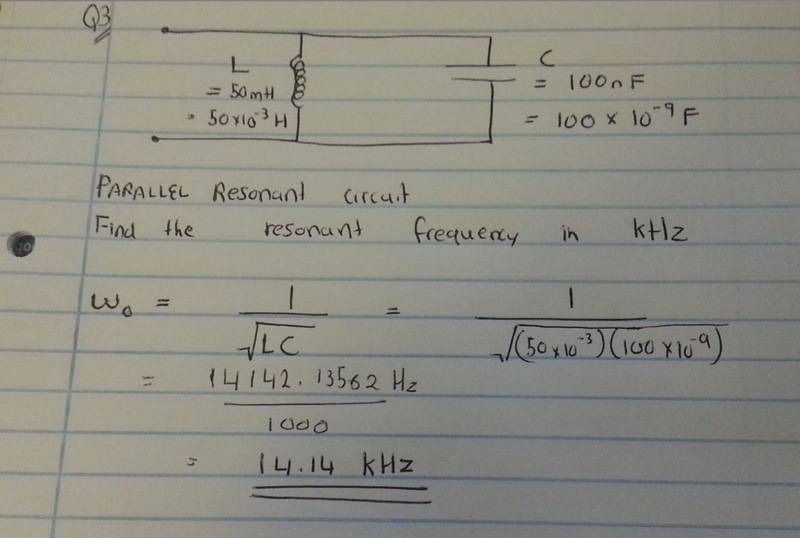 Q3
L
= 50mH
= 50×10⁻³ H
C
= 100nF
= 100 × 10⁻⁹ F
PARALLEL Resonant circuit
Find the resonant frequency in kHz
ω₀ = 1/√LC = 1/√(50×10⁻³)(100×10⁻⁹)
= 14142.13562 Hz / 1000
= 14.14 kHz